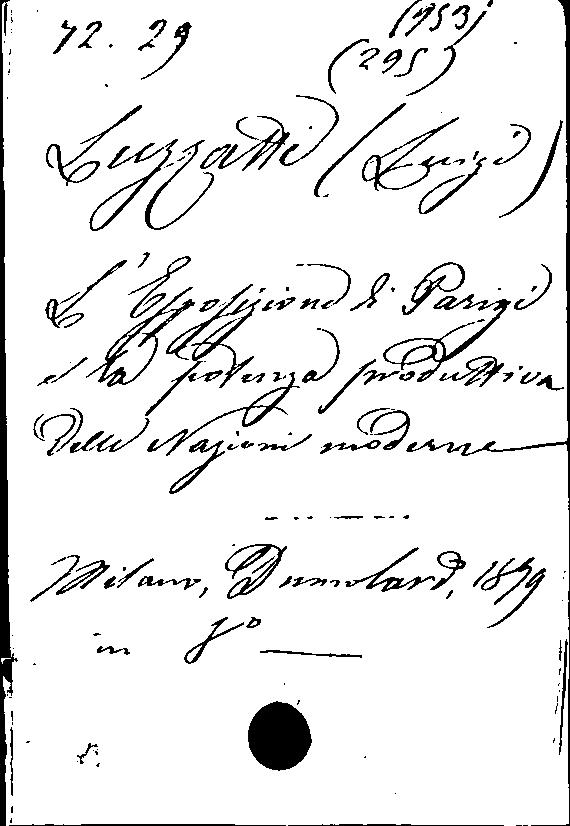 72. 29
(953)
(295)
Luzzatti (Luigi)
L'Esposizione di Parigi
e la potenza produttiva
delle Nazioni moderne
Milano, Dumolard, 1879
in 8º